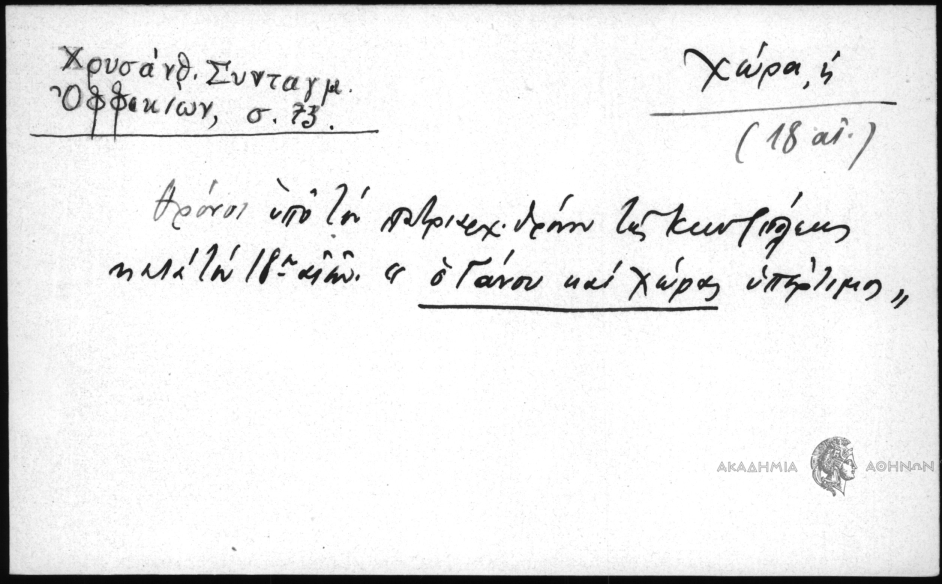 Χρυσάνθ. Συνταγμ.
Ὀφφικίων, σ. 73.
Χώρα, ἡ
(18 αἰ.)
θρόνοι ὑπὸ τὸν πατριαρχ. θρόνον τῆς Κωνσ)πόλεως
κατὰ τὸν 18ον αἰῶν. "ὁ Γάνου καὶ Χώρας ὑπέρτιμος"
ΑΚΑΔΗΜΙΑ ΑΘΗΝΩΝ